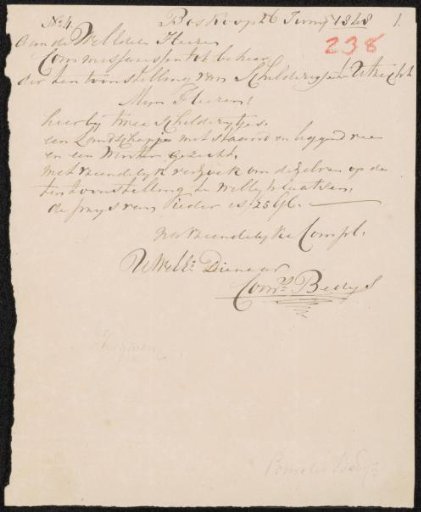 No 4 Boskoop 26 Juny 1848 1
238
Aan de WelEdele Heeren
Commissarissen tot beheer
der ten toonstelling van Schilderyen Utrecht
Myne Heeren
hierby twee Schilderytjes
een Landschapje met staand en liggend vee
en een Winter gezicht
met vriendelyk verzoek om dezelven op de
ten toonstelling te willen plaatsen
de prys van ieder is f 25
Na vriendelyke Compl.
UWelEd Dienaar
Corns